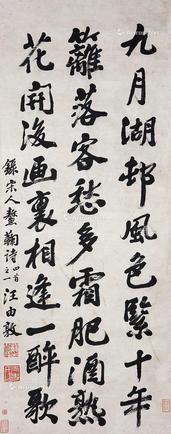 九月湖邨風色緊十年
籬落客愁多霜肥酒熟
花開後画裏相逢一醉歌
錄宋人螯菊詩四首之一 汪由敦